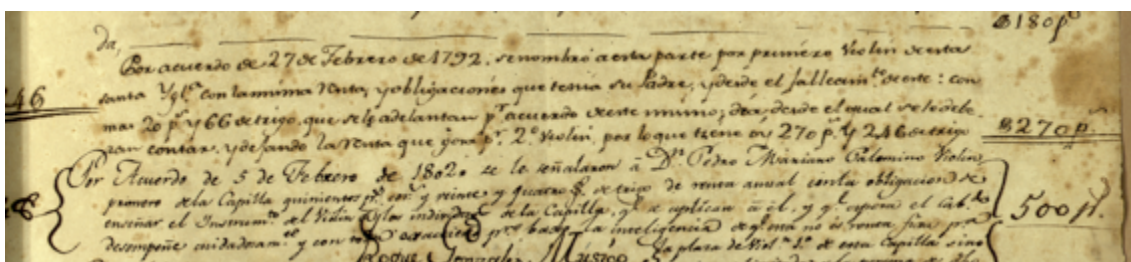 @180 p.s
da,
Por acuerdo de 27 de Febrero de 1792. se nombró a esta parte por primero Violin de esta
santa Ygl.ª con la misma renta, y obligaciones que tenia su Padre, y desde el fallecim.to de este: con
mas 20 p.s y 66 de trigo, que se le adelantan p.r acuerdo de este mismo, dia, desde el qual se le deben
46
ran contar, y dejando la renta que goza p.r 2.º Violin, por lo que tiene oy 270 p.s y 246 de trigo
@270 p.s
Por Acuerdo de 5 de Febrero de 1802. se le señalaron á D.n Pedro Mariano Palomino Violin
primero de la Capilla quinientos p.s cor.s y veinte y quatro f. de trigo de renta anual con la obligacion de
enseñar el Instrum.to del Violin á los individ.s de la Capilla, q.e se aplican á él, y q.e espera el Cab.do
500 p.s
desempeñe cuidadosam.te y con
bajo la inteligencia
la plaza de Viol.n 1.º de esta Capilla sino
Musico